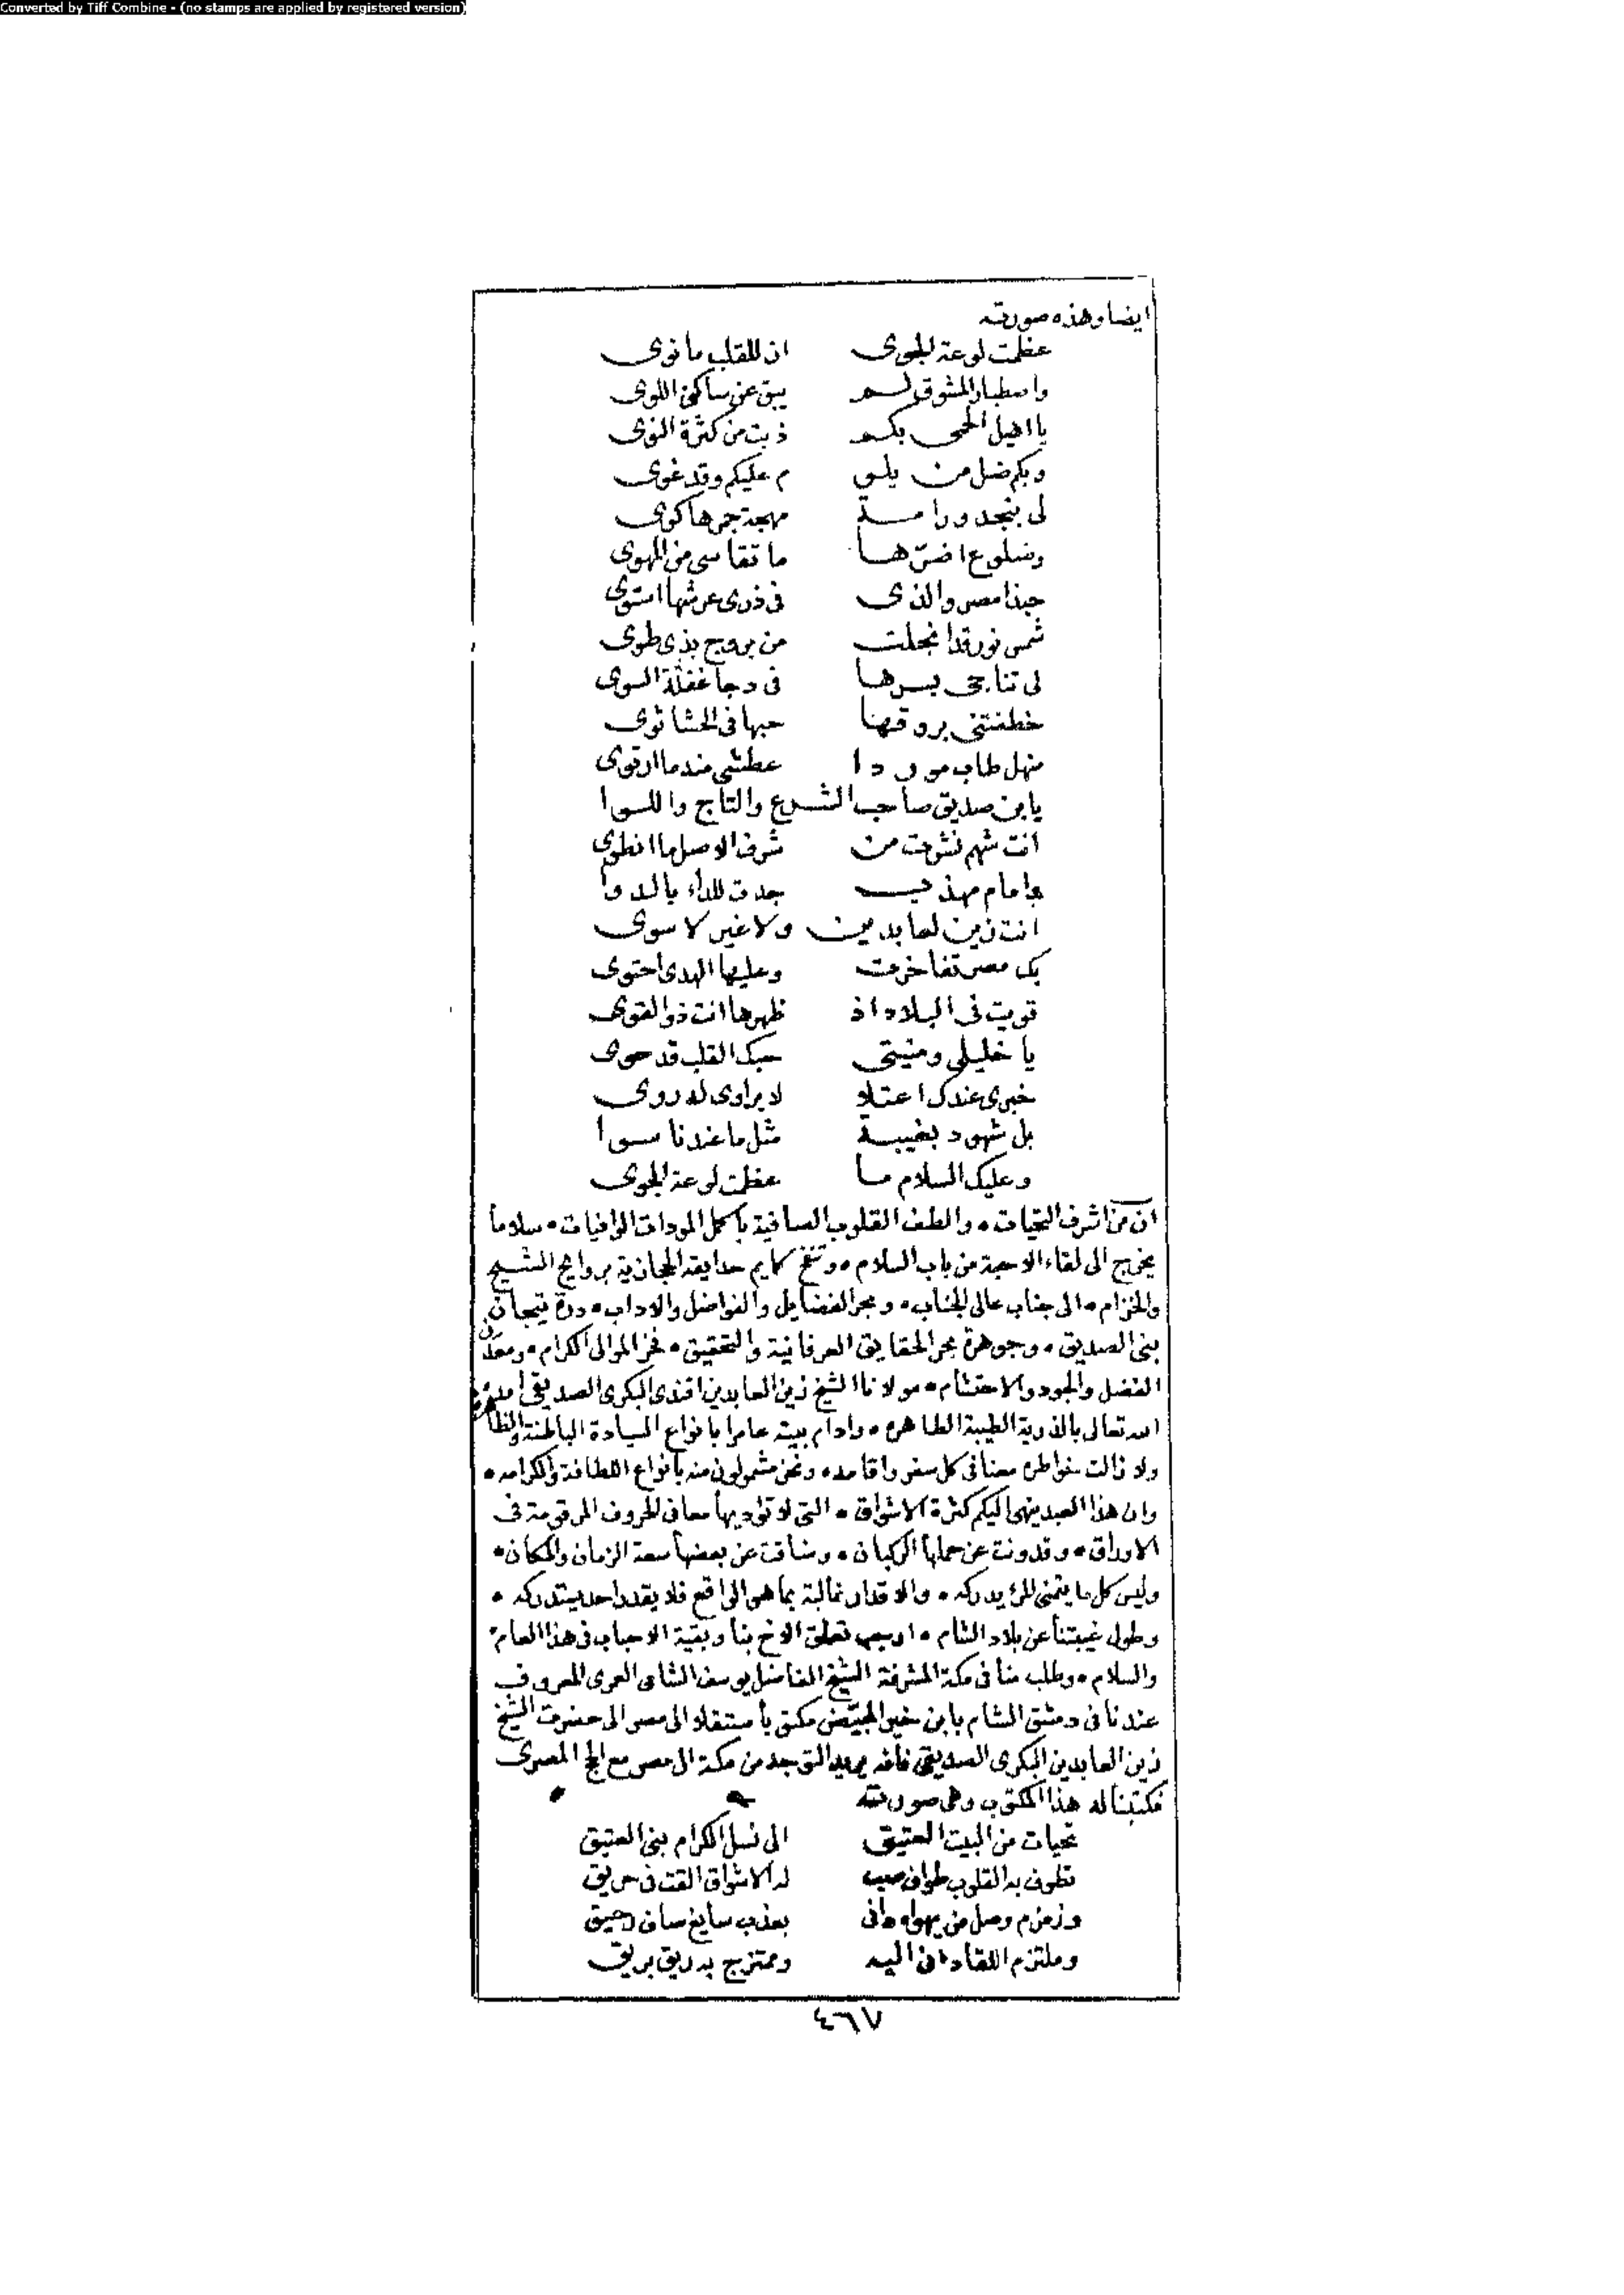 Converted by Tiff Combine - (no stamps are applied by registered version)
ايضا وهذه صورته
عظمت لوعة الجوى ان للقلب ما نوى
واصطبار المشوق لم يبق عن ساكن اللوى
يا اهيل الحمى بكم ذبت من كثرة النوى
وبكم ضل من يلو م عليكم وقد غوى
لى بنجد ورامة مهجة جمرها كوى
وضلوع اضرّها ما تقاسى من الهوى
حبذا مصر والذى فى ذرى عرشها استوى
شمس نور قد انجلت من بروج بذى طوى
لى تناجى بسرها فى دجا غفلة السوى
خطفتنى بروقها حبها فى الحشا ثوى
منهل طاب موردا عطشى منه ما ارتوى
يا بن صديق صاحب الشرع والتاج واللوا
انت شهم نشرت من شرف الاصل ما انطوى
يا امام مهذب جدت للداء بالدوا
انت زين لعابدين ولا غير لا سوى
بك مصر تفاخرت وعليها الهدى احتوى
قويت فى البلاد اذ ظهرها انت ذو القوى
يا خليلى ومنيتى حبك القلب قد حوى
خبرى عندك اعتلا لا براوى له روى
بل شهود بغيبة مثل ما عندنا سوا
وعليك السلام ما عظمت لوعة الجوى
ان من اشرف التحيات • والطف القلوب الصافية باكمل المودات الوافيات • سلاما
يخرج الى لقاء الاحبة من باب السلام • وتنفح كمايم حدايقه الحجازية بروايح الشيح
والخزام • الى جناب عالى الجناب • وبحر الفضايل والفواضل والاداب • درة تيجان
بنى الصديق • وجوهرة بحر الحقايق العرفانية والتحقيق • فخر الموالى الكرام • ومعدن
الفضل والجود والاحتشام • مولانا الشيخ زين العابدين افندى البكرى الصديقى امده
الله تعالى بالذرية الطيبة الطاهره • وادام بيته عامرا بانواع السيادة الباطنة والظاهره
ولا زالت خواطره معنا فى كل سفر واقامه • ونحن مشمولون منه بانواع اللطافة والكرامه •
وان هذا العبد ينهى اليكم كثرة الاشواق • التى لا تؤديها معانى الحروف المرقومة فى
الاوراق • وقد ونت عن حملها الركبان • وضاقت عن بعضها سعة الزمان والمكان •
وليس كل ما يتمنى المرء يدركه • والاقدار غالبة بما هو الواقع فلا يقدر احد يستدركه •
وطول غيبتنا عن بلاد الشام • اوجب تعلق الاخ بنا وبقية الاحباب فى هذا العام •
والسلام • وطلب منا فى مكة المشرفة الشيخ الفاضل يوسف الشامى العمرى المعروف
عندنا فى دمشق الشام بابن خير المبيّض مكتوبا ستفاد الى مصر الى حضرت الشيخ
زين العابدين البكرى الصديقى فانه يريد التوجه من مكة الى مصر مع الحج المصرى
فكتبنا له هذا المكتوب وهى صورته
تحيات من البيت العتيق الى نسل الكرام بنى العتيق
تطوف به القلوب طواف صب له الاشواق القت فى حريق
وزمزم وصل من يهواه دانى بعذب سايغ صاف رحيق
وملتزم اللقاء دانى اليه وممتزج به ريق بريق
٤٦٧